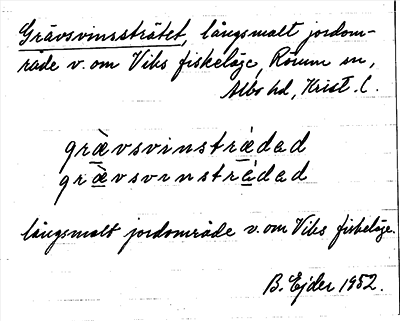 Grävsvinssträtet, långsmalt jordom-
råde v. om Viks fiskeläge, Rörum sn,
Albo hd, Krist. l.
grævsvinstrædad
grævsvinstrádad
långsmalt jordområde v. om Viks fiskeläge.
B. Ejder 1952.